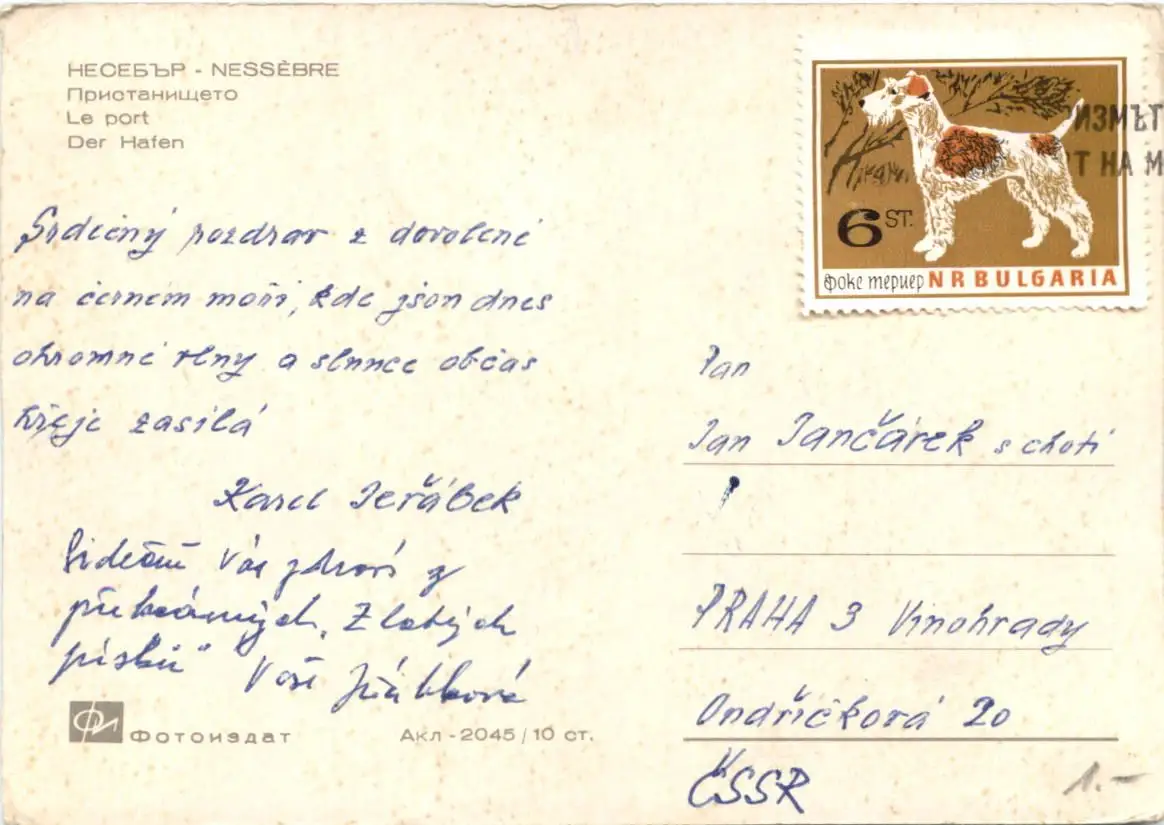 НЕСЕБЪР - NESSÈBRE
Пристанището
Le port
Der Hafen
ИЗМЪТ
Т НА М
6 ST.
фокс териер NR BULGARIA
Srdečný pozdrav z dovolené
na černém moři, kde json dnes
ohromné vlny a slunce občas
hřeje zasílá
Karel Jeřábek
Srdečně Vás zdraví z
překrásných „Zlatých
písků" Vaše
Pan
Jan Jančárek s chotí
PRAHA 3 Vinohrady
Ondříčková 20
ČSSR
1.-
Фотоиздат Акл-2045/10 ст.